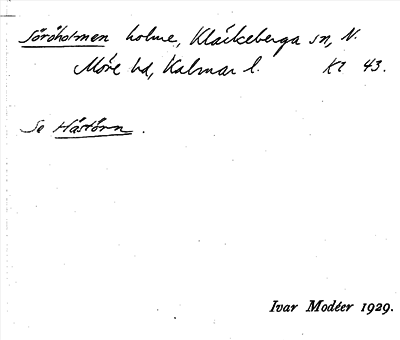 Söröholmen holme, Kläckeberga sn, N.
Möre hd, Kalmar l. Kl 43.
Se Hästörn.
Ivar Modéer 1929.